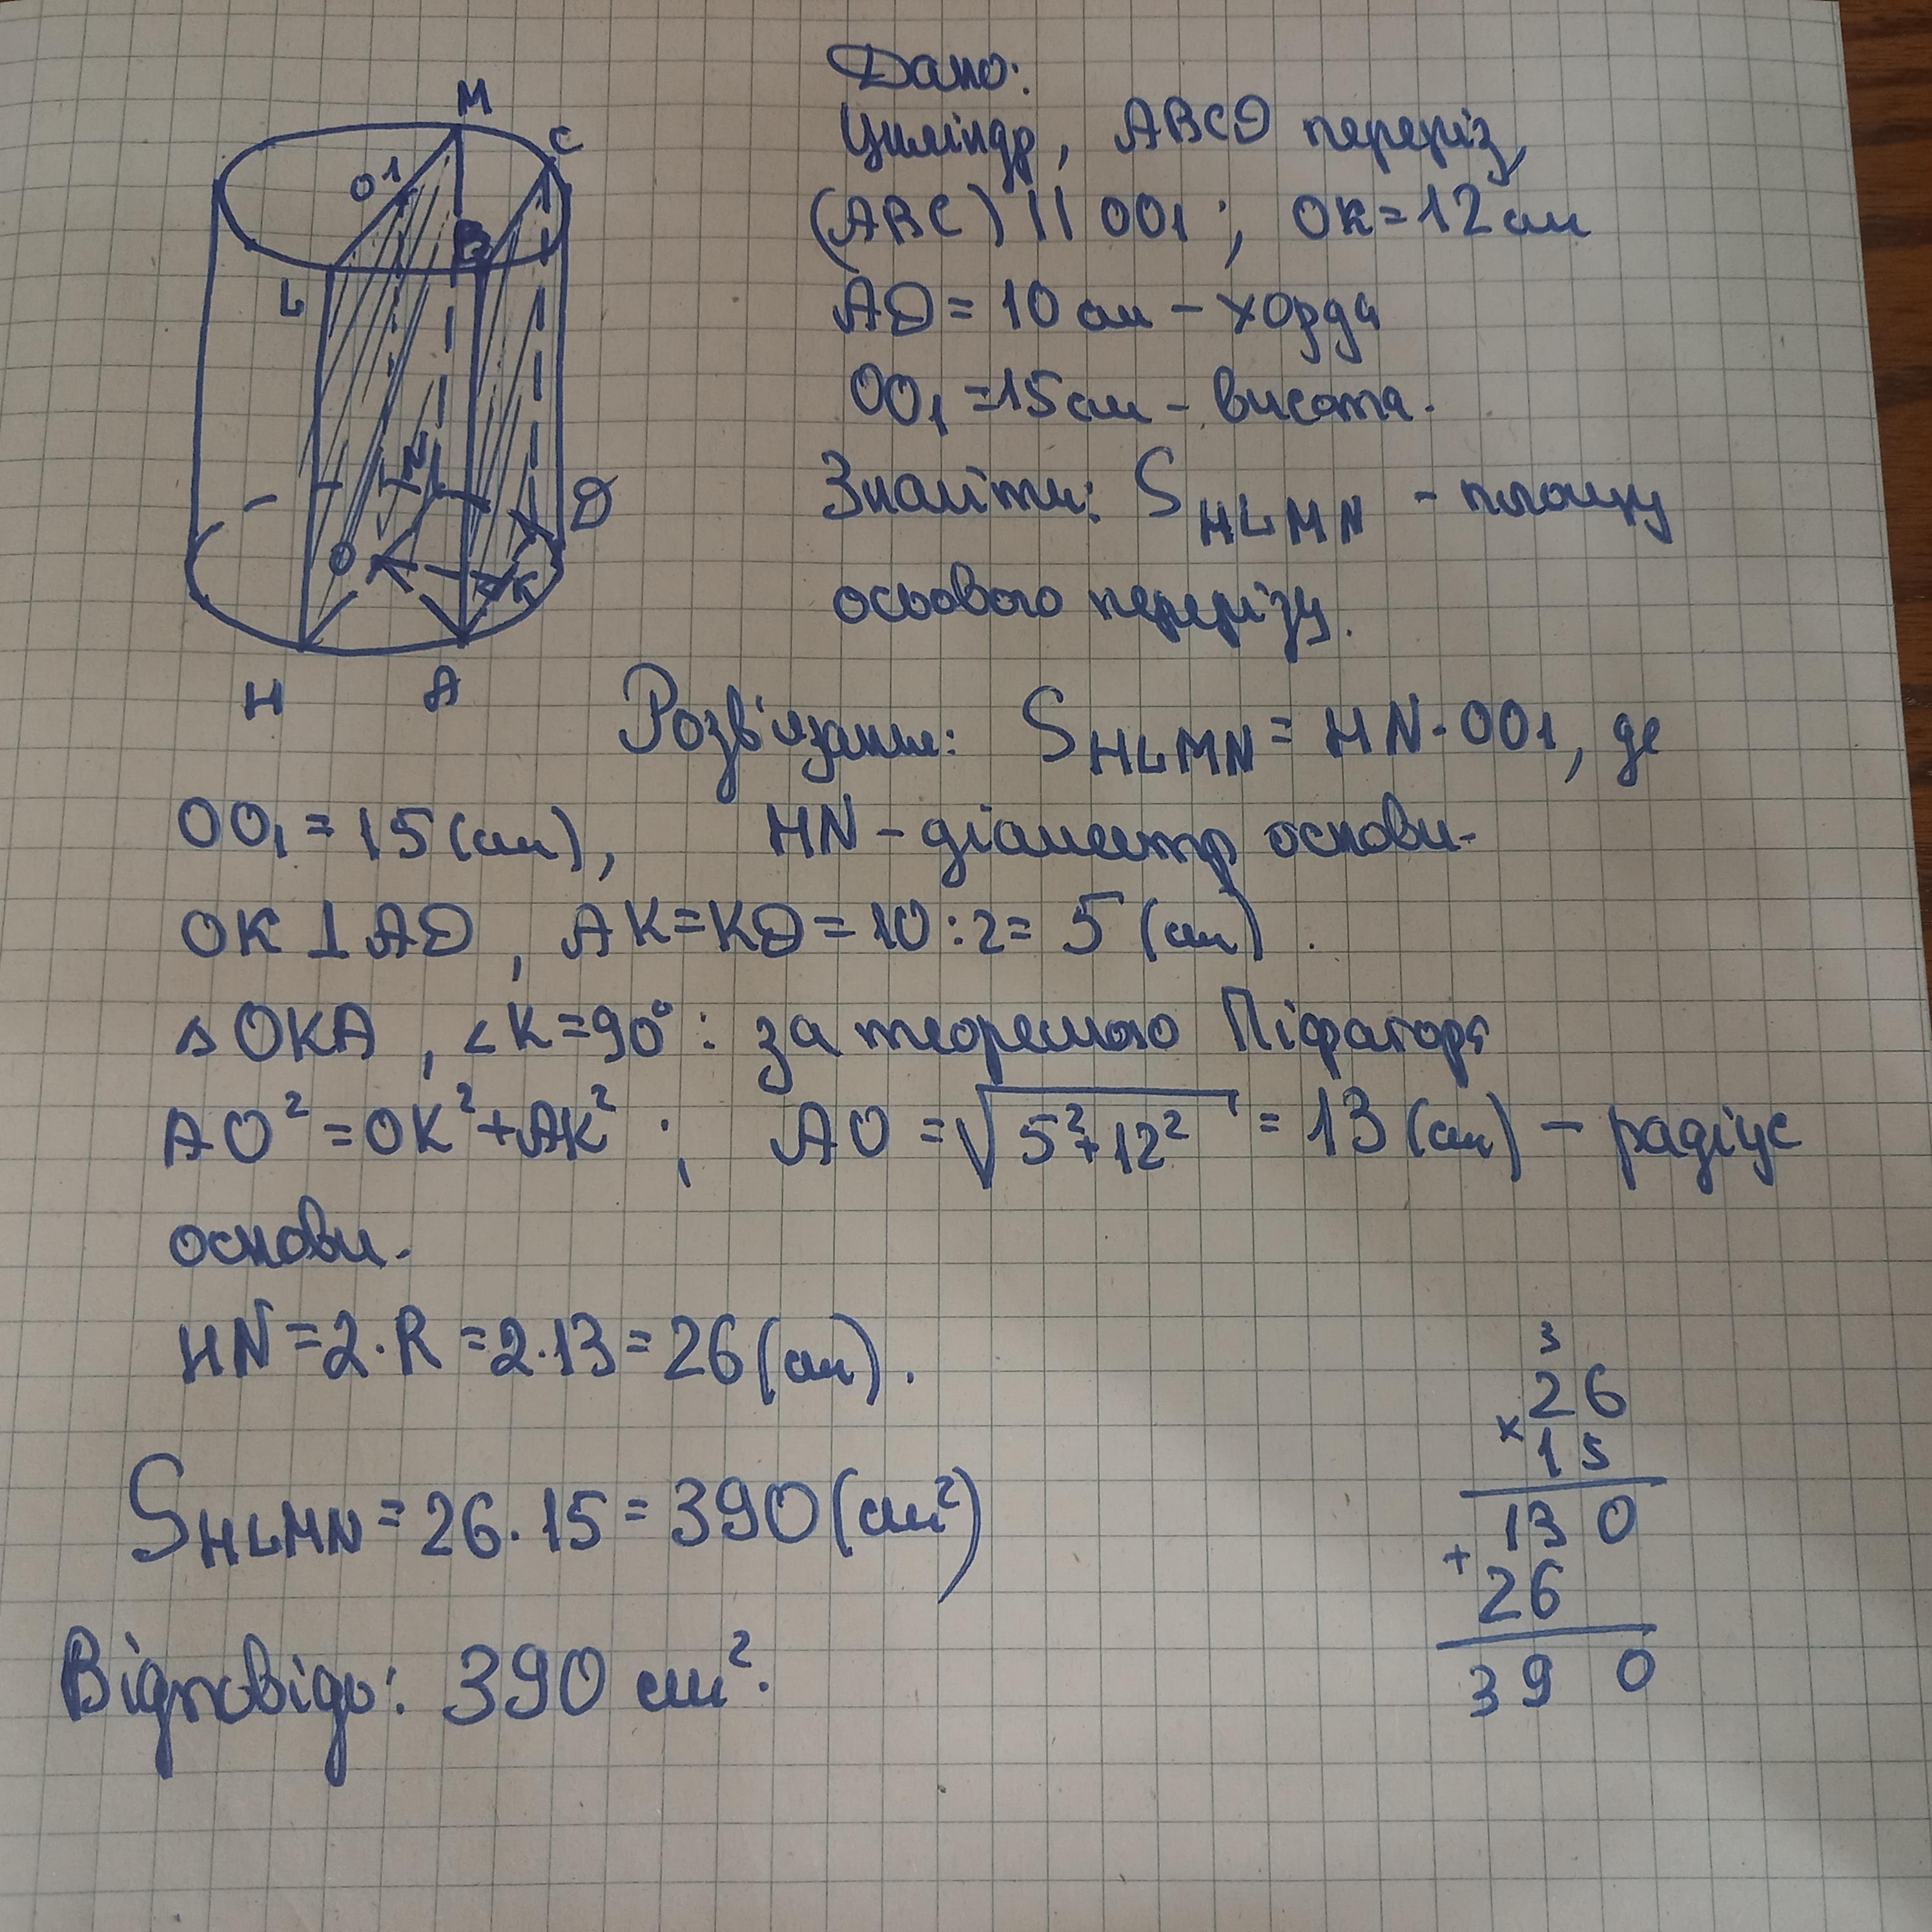 M
C
O1
B
L
N
D
O
K
H
A
Дано:
Циліндр, ABCD переріз,
(ABC) || OO1; OK = 12 см
AD = 10 см - хорда
OO1 = 15 см - висота.
Знайти: S HLMN - площу
осьового перерізу.
Розв'язання: S HLMN = HN · OO1, де
OO1 = 15 (см), HN - діаметр основи.
OK ⊥ AD, AK = KD = 10 : 2 = 5 (см).
△ OKA, ∠K = 90°: за теоремою Піфагора
AO² = OK² + AK²; AO = √5² + 12² = 13 (см) - радіус
основи.
HN = 2 · R = 2 · 13 = 26 (см).
S HLMN = 26 · 15 = 390 (см²)
Відповідь: 390 см².
3
26
× 15
130
+ 26
390